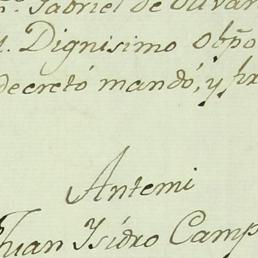 Gabriel de Olivar
Dignisimo Obpõ
decretó mandó, y
Antemi
Juan Isidro Camp